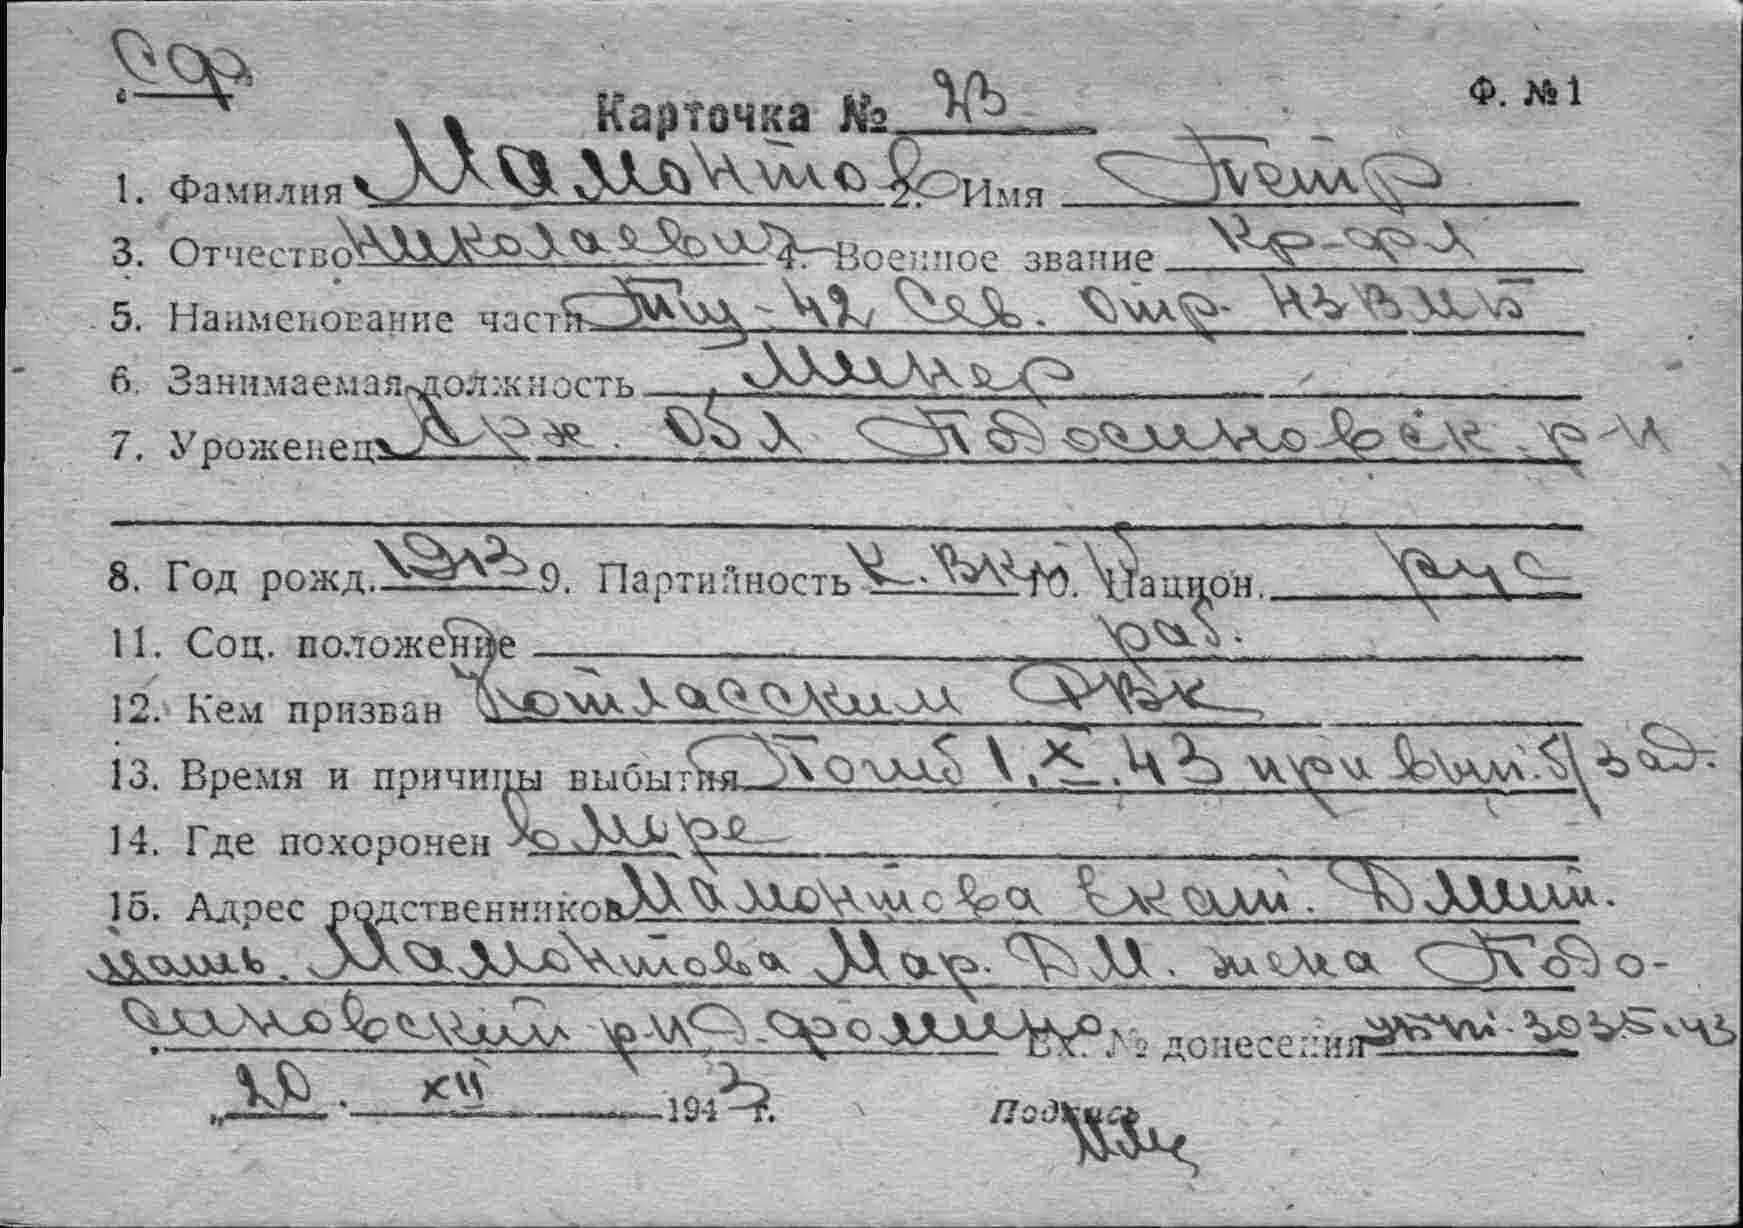 СФ
Карточка № 23 Ф. №1
1. Фамилия Мамонтов 2. Имя Петр
3. Отчество Николаевич 4. Военное звание Кр-фл
5. Наименование части Тщ-42 Сев. Отр. НЗВМБ
6. Занимаемая должность Минер
7. Уроженец Арх. Обл Подосиновск. р-н
8. Год рожд. 1913 9. Партийность К. ВКПб 10. Национ. рус
11. Соц. положение раб.
12. Кем призван Котласским РВК
13. Время и причины выбытия Погиб 1.X.43 при вып. б/зад.
14. Где похоронен в море
15. Адрес родственников Мамонтова Екат. Дмит.
мать. Мамонтова Мар. Дм. жена Подо-
синовский р-н д. Фомино Вх. № донесения 3035.43
„20. XII 1943 г. Подпись